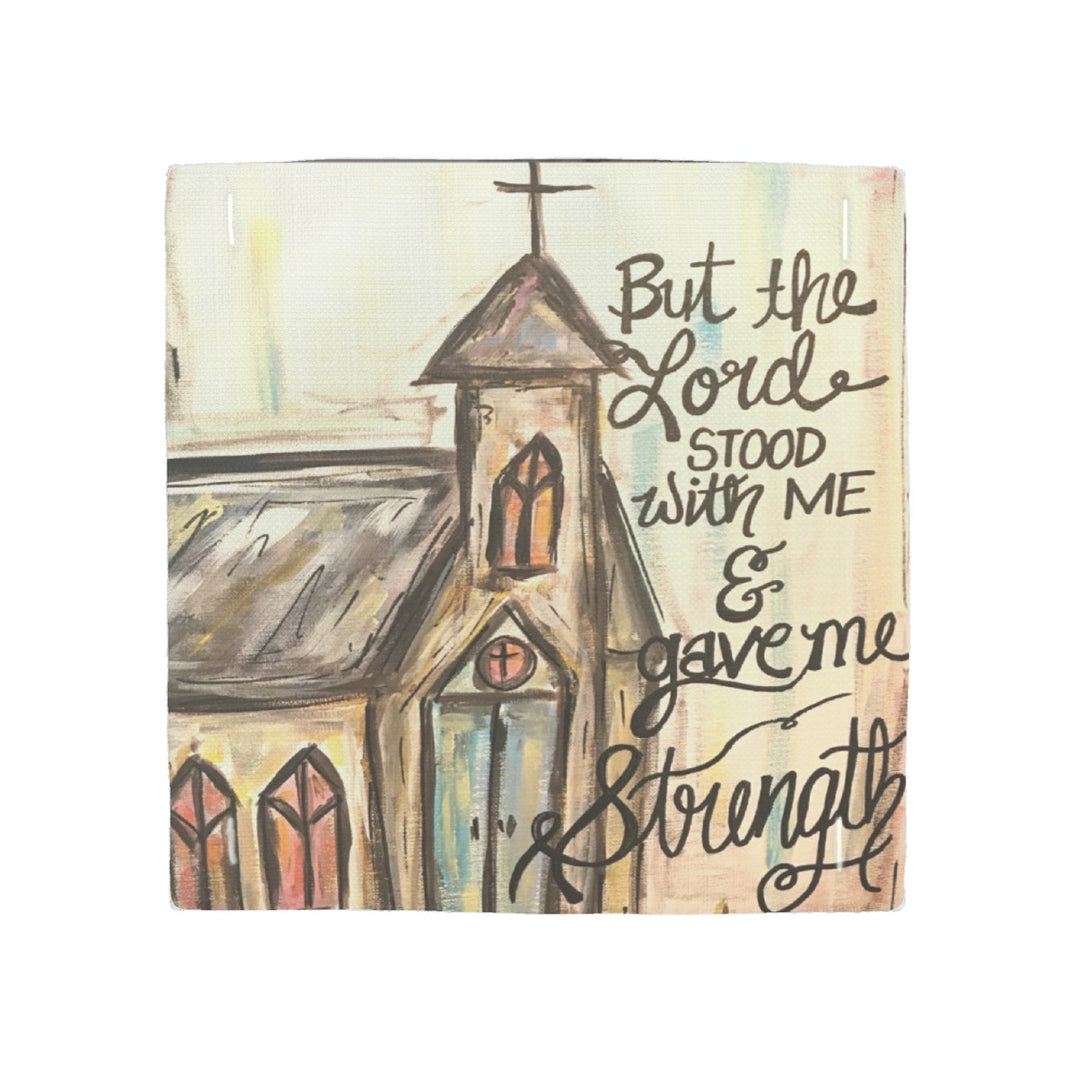 But the
Lord
STOOD
with ME
&
gave me
Strength